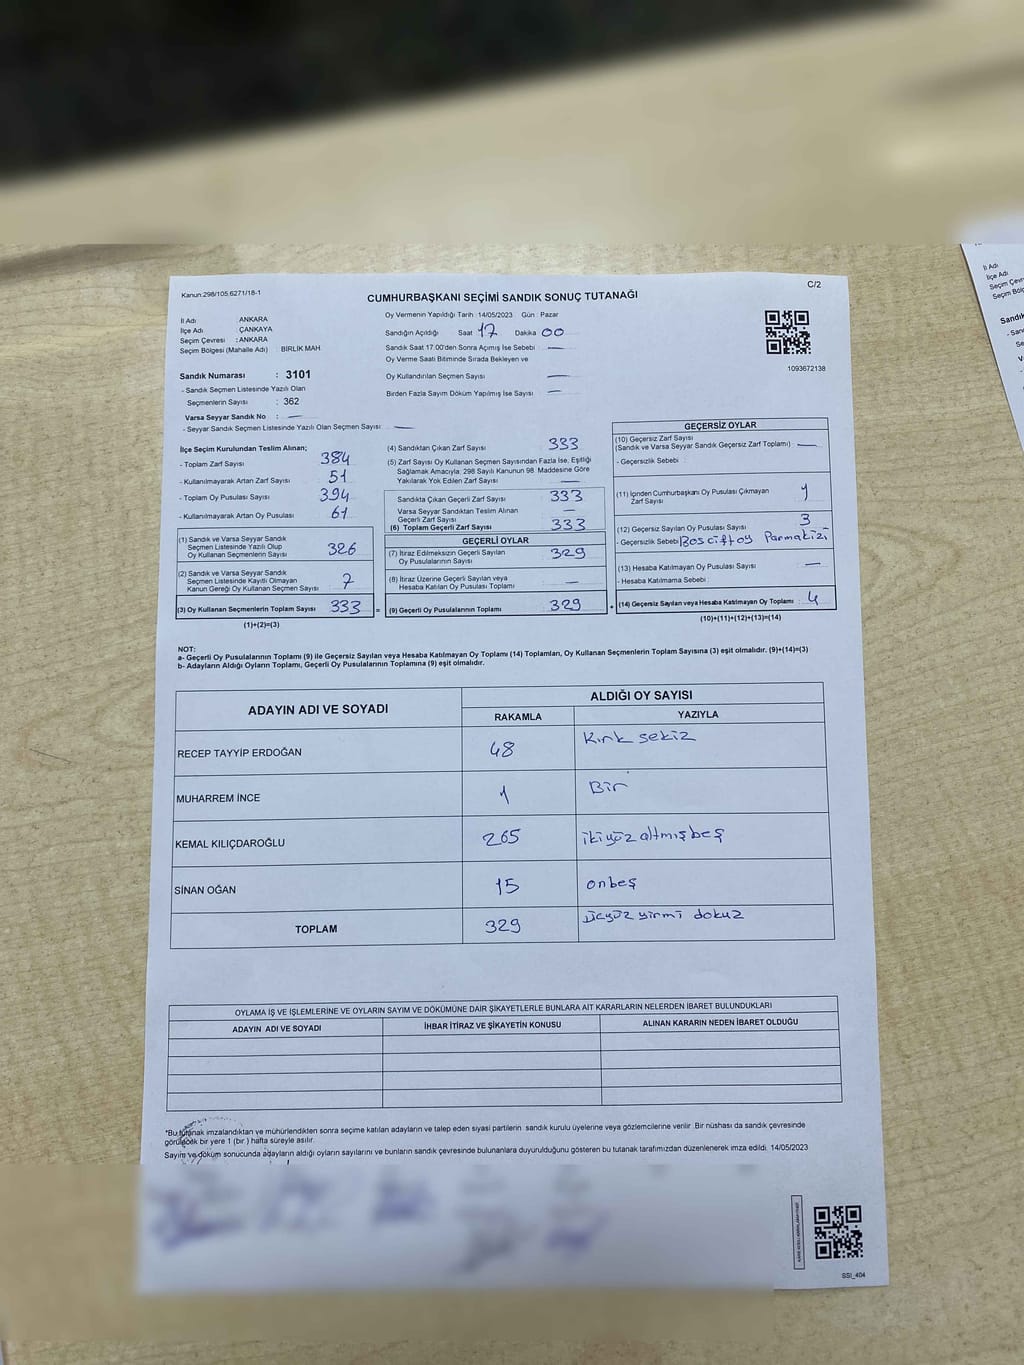 Kanun:298/105,6271/18-1
C/2
CUMHURBAŞKANI SEÇİMİ SANDIK SONUÇ TUTANAĞI
İl Adı : ANKARA
İlçe Adı : ÇANKAYA
Seçim Çevresi : ANKARA
Seçim Bölgesi (Mahalle Adı) : BİRLİK MAH
Sandık Numarası : 3101
- Sandık Seçmen Listesinde Yazılı Olan
Seçmenlerin Sayısı : 362
Varsa Seyyar Sandık No : —
- Seyyar Sandık Seçmen Listesinde Yazılı Olan Seçmen Sayısı : —
Oy Vermenin Yapıldığı Tarih :14/05/2023 Gün : Pazar
Sandığın Açıldığı Saat 17 Dakika 00
Sandık Saat 17.00'den Sonra Açımış İse Sebebi : —
Oy Verme Saati Bitiminde Sırada Bekleyen ve
Oy Kullandırılan Seçmen Sayısı : —
Birden Fazla Sayım Döküm Yapılmış İse Sayısı : —
1093672138
İlçe Seçim Kurulundan Teslim Alınan;
- Toplam Zarf Sayısı : 384
- Kullanılmayarak Artan Zarf Sayısı : 51
- Toplam Oy Pusulası Sayısı : 394
- Kullanılmayarak Artan Oy Pusulası : 61
(1) Sandık ve Varsa Seyyar Sandık
Seçmen Listesinde Yazılı Olup
Oy Kullanan Seçmenlerin Sayısı : 326
(2) Sandık ve Varsa Seyyar Sandık
Seçmen Listesinde Kayıtlı Olmayan
Kanun Gereği Oy Kullanan Seçmenlerin Sayısı : 7
(3) Oy Kullanan Seçmenlerin Toplam Sayısı : 333 =
(1)+(2)=(3)
(4) Sandıktan Çıkan Zarf Sayısı : 333
(5) Zarf Sayısı Oy Kullanan Seçmen Sayısından Fazla İse, Eşitliği
Sağlamak Amacıyla: 298 Sayılı Kanunun 98. Maddesine Göre
Yakılarak Yok Edilen Zarf Sayısı : —
Sandıkta Çıkan Geçerli Zarf Sayısı : 333
Varsa Seyyar Sandıktan Teslim Alınan
Geçerli Zarf Sayısı : —
(6) Toplam Geçerli Zarf Sayısı : 333
GEÇERLİ OYLAR
(7) İtiraz Edilmeksizin Geçerli Sayılan
Oy Pusulalarının Sayısı : 329
(8) İtiraz Üzerine Geçerli Sayılan veya
Hesaba Katılan Oy Pusulası Toplamı : —
(9) Geçerli Oy Pusulalarının Toplamı : 329 +
GEÇERSİZ OYLAR
(10) Geçersiz Zarf Sayısı
(Sandık ve Varsa Seyyar Sandık Geçersiz Zarf Toplamı) : —
- Geçersizlik Sebebi :
(11) İçinden Cumhurbaşkanı Oy Pusulası Çıkmayan
Zarf Sayısı : 1
(12) Geçersiz Sayılan Oy Pusulası Sayısı : 3
- Geçersizlik Sebebi : Bos çift oy Parmakizi
(13) Hesaba Katılmayan Oy Pusulası Sayısı : —
- Hesaba Katılmama Sebebi :
(14) Geçersiz Sayılan veya Hesaba Katılmayan Oy Toplamı : 4
(10)+(11)+(12)+(13)=(14)
NOT:
a- Geçerli Oy Pusulalarının Toplamı (9) ile Geçersiz Sayılan veya Hesaba Katılmayan Oy Toplamı (14) Toplamları, Oy Kullanan Seçmenlerin Toplam Sayısına (3) eşit olmalıdır. (9)+(14)=(3)
b- Adayların Aldığı Oyların Toplamı, Geçerli Oy Pusulalarının Toplamına (9) eşit olmalıdır.
ADAYIN ADI VE SOYADI
ALDIĞI OY SAYISI
RAKAMLA YAZIYLA
RECEP TAYYİP ERDOĞAN 48 Kırk sekiz
MUHARREM İNCE 1 Bir
KEMAL KILIÇDAROĞLU 265 ikiyüz altmışbeş
SİNAN OĞAN 15 onbeş
TOPLAM 329 üçyüz yirmi dokuz
OYLAMA İŞ VE İŞLEMLERİNE VE OYLARIN SAYIM VE DÖKÜMÜNE DAİR ŞİKAYETLERLE BUNLARA AİT KARARLARIN NELERDEN İBARET BULUNDUKLARI
ADAYIN ADI VE SOYADI İHBAR İTİRAZ VE ŞİKAYETİN KONUSU ALINAN KARARIN NEDEN İBARET OLDUĞU
*Bu tutanak imzalandıktan ve mühürlendikten sonra seçime katılan adayların ve talep eden siyasi partilerin sandık kurulu üyelerine veya gözlemcilerine verilir. Bir nüshası da sandık çevresinde
görülecek bir yere 1 (bir ) hafta süreyle asılır.
Sayım ve döküm sonucunda adayların aldığı oyların sayılarını ve bunların sandık çevresinde bulunanlara duyurulduğunu gösteren bu tutanak tarafımızdan düzenlenerek imza edildi. 14/05/2023
SSI_404
İl Adı
İlçe Adı
Seçim Çevr
Seçim Bölg
Sandık